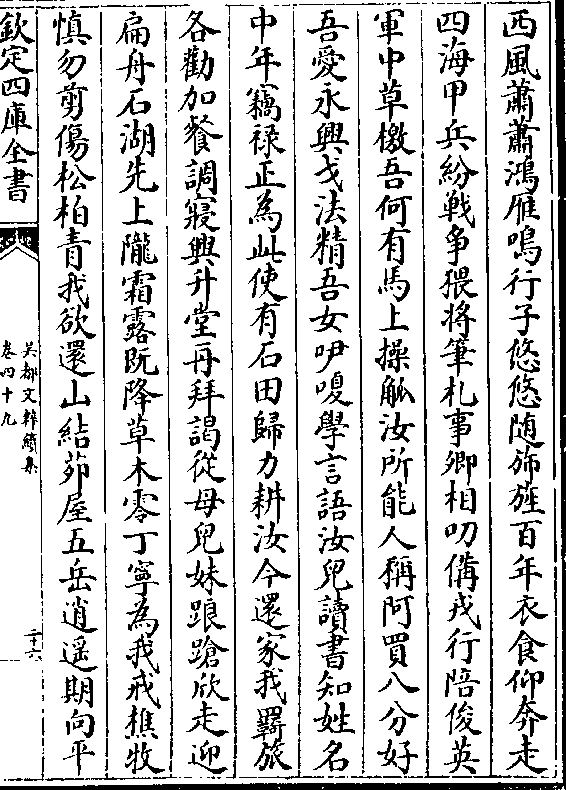 西風蕭蕭鴻雁鳴行子悠悠随斾旌百年衣食仰奔走
四海甲兵紛戰争猥将筆札事卿相叨備戎行陪俊英
軍中草檄吾何有馬上操觚汝所能人稱阿買八分好
吾愛永興戈法精吾女咿嗄學言語汝兒讀書知姓名
中年竊禄正為此使有石田歸力耕汝今還家我羇旅
各勸加餐調寢興升堂再拜謁從母兒妹踉蹌欣走迎
扁舟石湖先上隴霜露既降草木零丁寧為我戒樵牧
慎勿剪傷松柏青我欲還山結茆屋五岳逍遥期向平
欽定四庫全書
吴都文粹續集
卷四十九
二十六